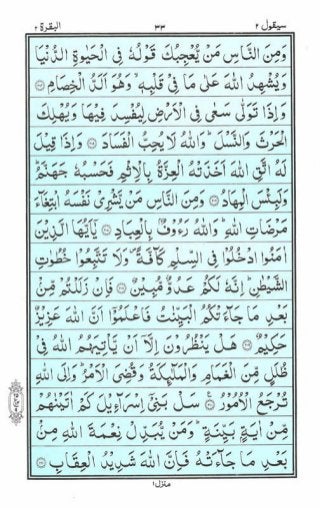 سيقول ٢ ٣٣ البقرة ٢
وَمِنَ النَّاسِ مَنْ يُّعْجِبُكَ قَوْلُهٗ فِى الْحَيٰوةِ الدُّنْيَا
وَيُشْهِدُ اللّٰهَ عَلٰى مَا فِىْ قَلْبِهٖ ۙ وَهُوَ اَلَدُّ الْخِصَامِ ۝
وَاِذَا تَوَلّٰى سَعٰى فِى الْاَرْضِ لِيُفْسِدَ فِيْهَا وَيُهْلِكَ
الْحَرْثَ وَالنَّسْلَ ؕ وَاللّٰهُ لَا يُحِبُّ الْفَسَادَ ۝ وَاِذَا قِيْلَ
لَهُ اتَّقِ اللّٰهَ اَخَذَتْهُ الْعِزَّةُ بِالْاِثْمِ فَحَسْبُهٗ جَهَنَّمُ ؕ
وَلَبِئْسَ الْمِهَادُ ۝ وَمِنَ النَّاسِ مَنْ يَّشْرِىْ نَفْسَهُ ابْتِغَآءَ
مَرْضَاتِ اللّٰهِ ؕ وَاللّٰهُ رَءُوْفٌۢ بِالْعِبَادِ ۝ يٰۤاَيُّهَا الَّذِيْنَ
اٰمَنُوا ادْخُلُوْا فِى السِّلْمِ كَآفَّةً ۪ وَلَا تَتَّبِعُوْا خُطُوٰتِ
الشَّيْطٰنِ ؕ اِنَّهٗ لَكُمْ عَدُوٌّ مُّبِيْنٌ ۝ فَاِنْ زَلَلْتُمْ مِّنْۢ
بَعْدِ مَا جَآءَتْكُمُ الْبَيِّنٰتُ فَاعْلَمُوْۤا اَنَّ اللّٰهَ عَزِيْزٌ
حَكِيْمٌ ۝ هَلْ يَنْظُرُوْنَ اِلَّاۤ اَنْ يَّاْتِيَهُمُ اللّٰهُ فِىْ
ظُلَلٍ مِّنَ الْغَمَامِ وَالْمَلٰٓئِكَةُ وَقُضِىَ الْاَمْرُ ؕ وَاِلَى اللّٰهِ
تُرْجَعُ الْاُمُوْرُ ۝ سَلْ بَنِىْۤ اِسْرَآءِيْلَ كَمْ اٰتَيْنٰهُمْ
مِّنْ اٰيَةٍۢ بَيِّنَةٍ ؕ وَمَنْ يُّبَدِّلْ نِعْمَةَ اللّٰهِ مِنْۢ
بَعْدِ مَا جَآءَتْهُ فَاِنَّ اللّٰهَ شَدِيْدُ الْعِقَابِ ۝
منزل ١